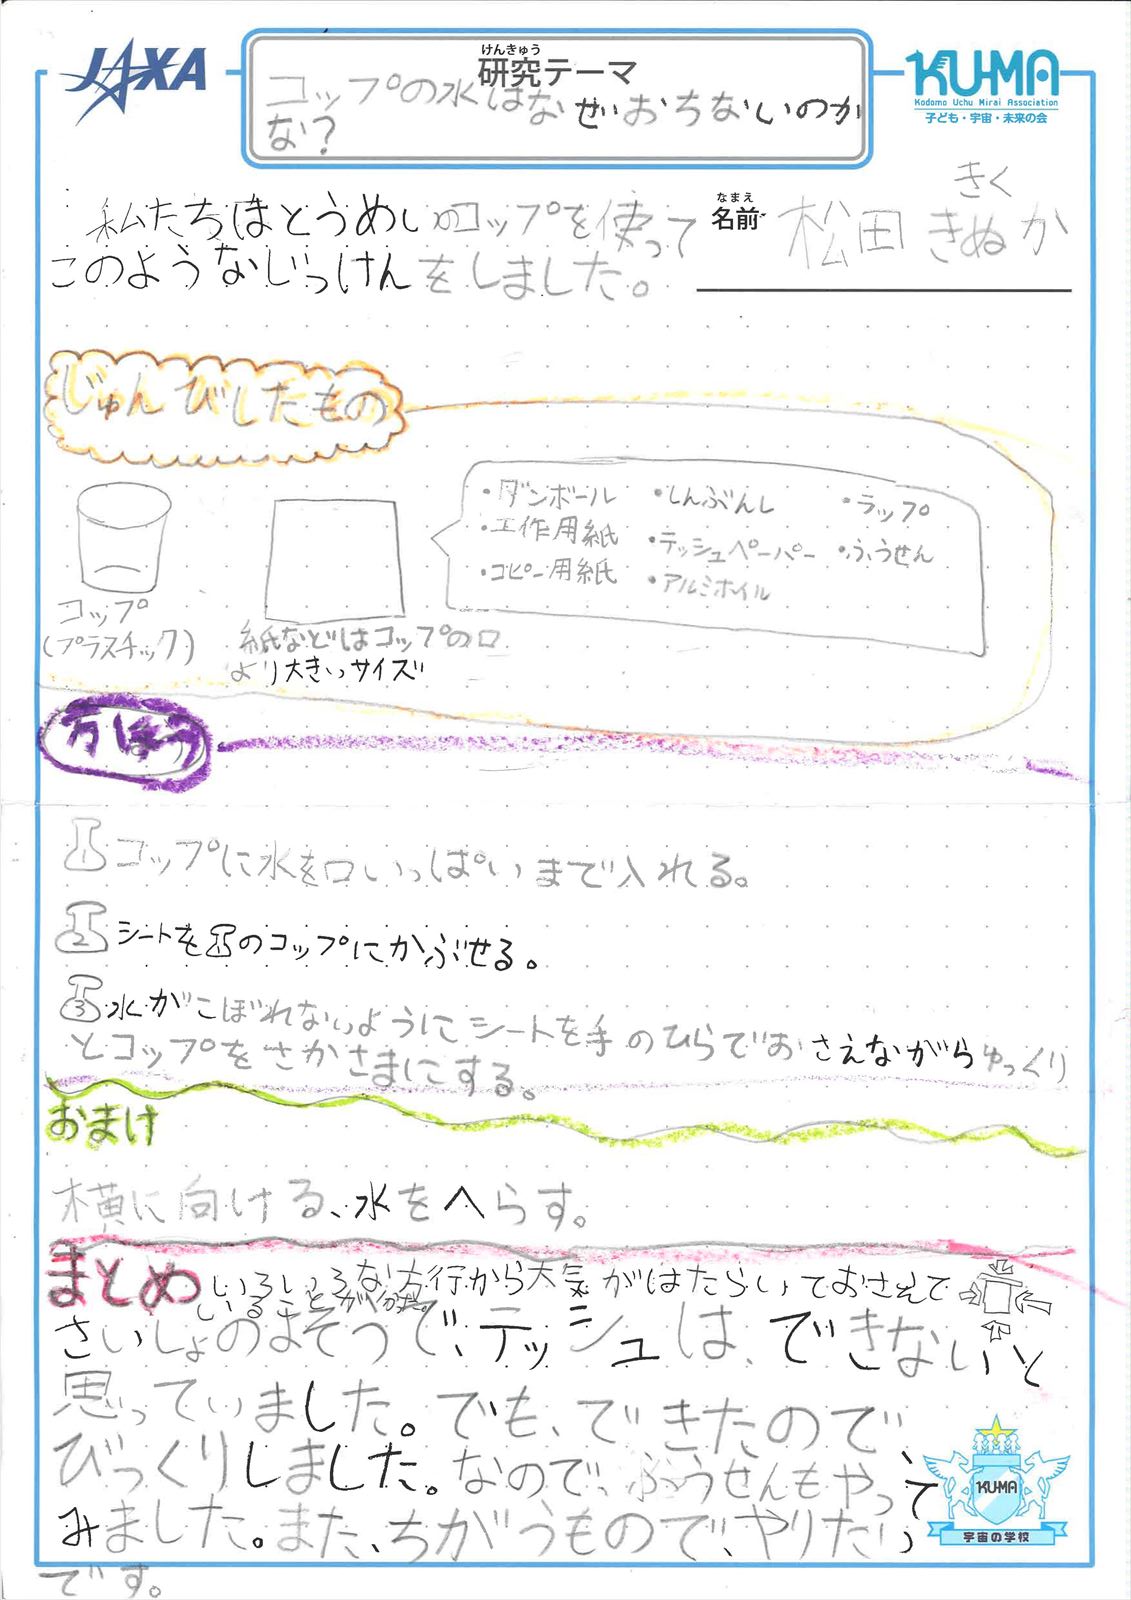 JAXA
けんきゅう
研究テーマ
コップの水はなぜおちないのか
な？
KU-MA
Kodomo Uchu Mirai Association
子ども・宇宙・未来の会
私たちはとうめいのコップを使って
このようなじっけんをしました。
なまえ
名前
きく
松田 きぬか
じゅんびしたもの
コップ
(プラスチック)
紙などはコップの口
より大きいサイズ
・ダンボール
・工作用紙
・コピー用紙
・しんぶんし
・テッシュペーパー
・アルミホイル
・ラップ
・ふうせん
方ほう
1 コップに水を口いっぱいまで入れる。
2 シートを1のコップにかぶせる。
3 水がこぼれないようにシートを手のひらでおさえながらゆっくり
とコップをさかさまにする。
おまけ
横に向ける、水をへらす。
まとめ
いろいろな方行から大気がはたらいておさえて
いることが
さいしょのよそうで、テッシュは、できないと
思っていました。でも、できたので、
びっくりしました。なので、ふうせんもやって
みました。また、ちがうもので、やりたい
です。
KU-MA
宇宙の学校